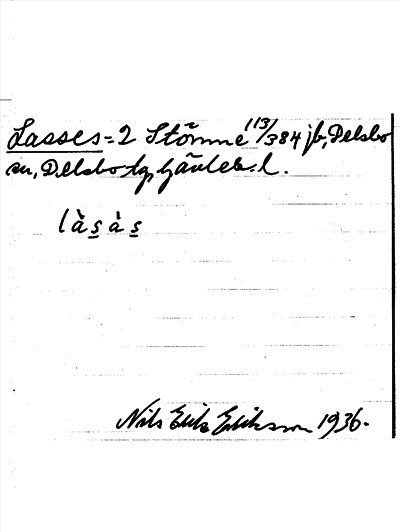 Lasses = 2 Stömne 113/384 jb, Delsbo
sn, Delsbo tg, Gävleb. l.
làs̲às̲
Nils Erik Eriksson 1936.